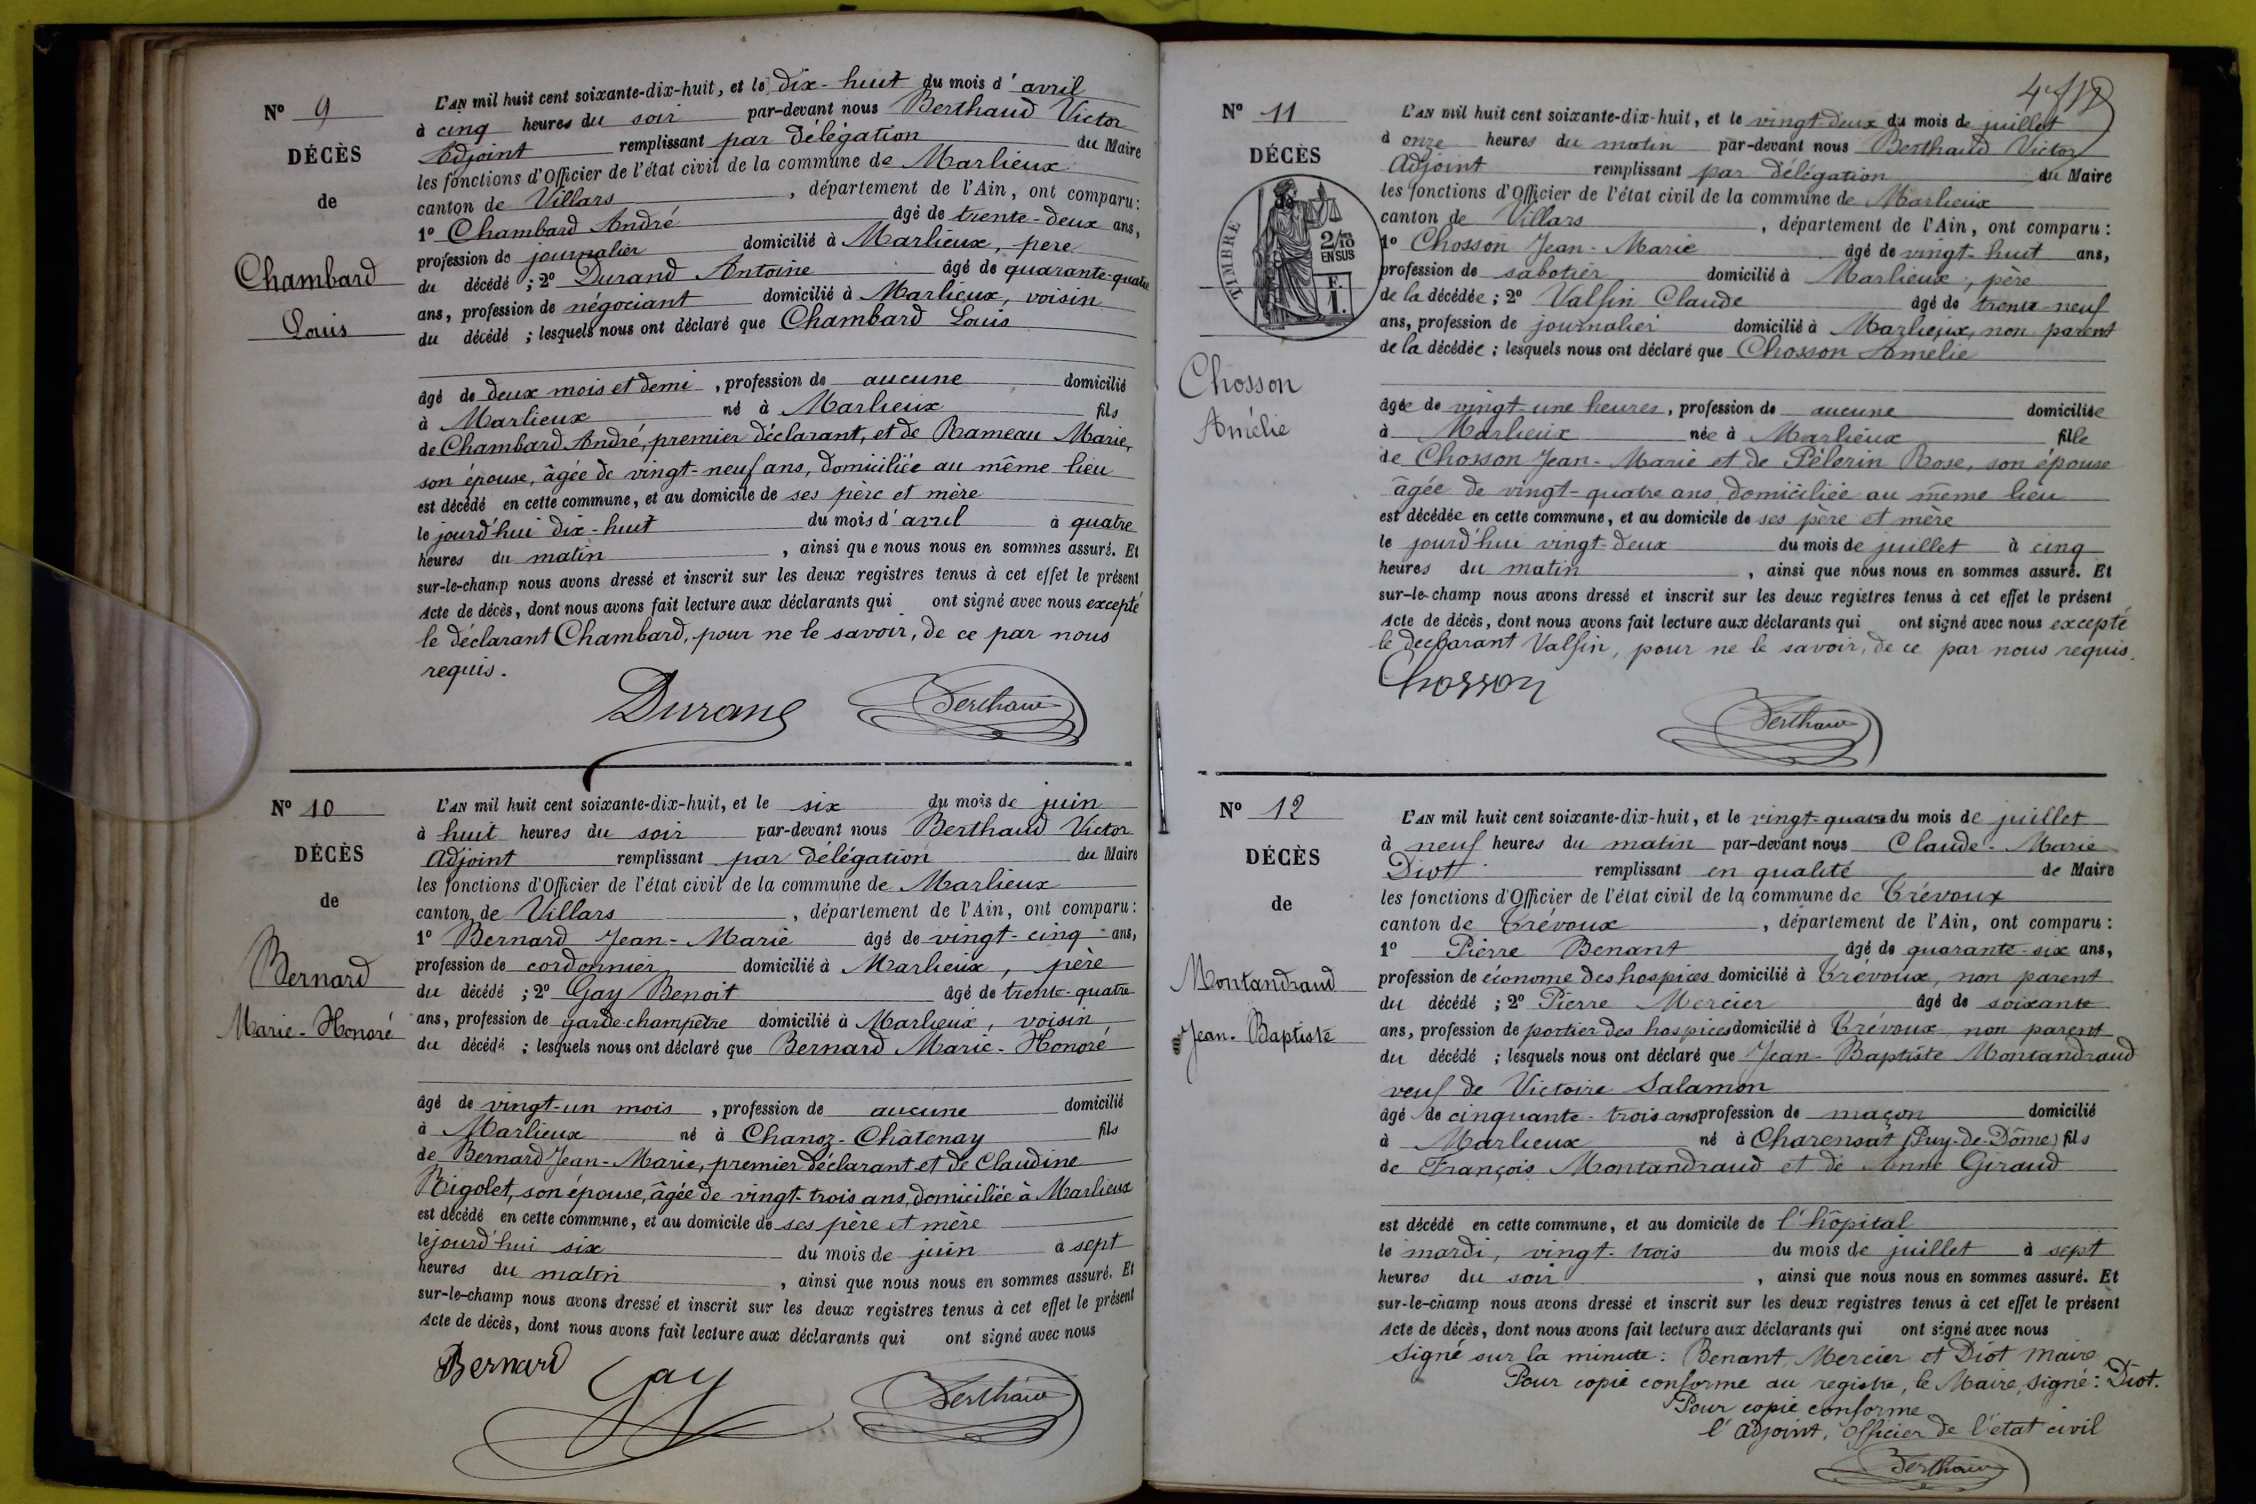 N° 9
DÉCÈS
de
Chambard
Louis
L'AN mil huit cent soixante-dix-huit, et le dix-huit du mois d'avril
à cinq heures du soir par-devant nous Berthaud Victor
Adjoint remplissant par délégation du Maire
les fonctions d'Officier de l'état civil de la commune de Marlieux
canton de Villars, département de l'Ain, ont comparu:
1° Chambard André âgé de trente-deux ans,
profession de journalier domicilié à Marlieux, père
du décédé ; 2° Durand Antoine âgé de quarante-quatre
ans, profession de négociant domicilié à Marlieux, voisin
du décédé ; lesquels nous ont déclaré que Chambard Louis
âgé de deux mois et demi, profession de aucune domicilié
à Marlieux né à Marlieux fils
de Chambard André, premier déclarant, et de Rameau Marie,
son épouse, âgée de vingt-neuf ans, domiciliée au même lieu
est décédé en cette commune, et au domicile de ses père et mère
le jourd'hui dix-huit du mois d'avril à quatre
heures du matin, ainsi que nous nous en sommes assuré. Et
sur-le-champ nous avons dressé et inscrit sur les deux registres tenus à cet effet le présent
Acte de décès, dont nous avons fait lecture aux déclarants qui ont signé avec nous excepté
le déclarant Chambard, pour ne le savoir, de ce par nous
requis.
Durand Berthaud
N° 10
DÉCÈS
de
Bernard
Marie-Honoré
L'AN mil huit cent soixante-dix-huit, et le six du mois de juin
à huit heures du soir par-devant nous Berthaud Victor
Adjoint remplissant par délégation du Maire
les fonctions d'Officier de l'état civil de la commune de Marlieux
canton de Villars, département de l'Ain, ont comparu:
1° Bernard Jean-Marie âgé de vingt-cinq ans,
profession de cordonnier domicilié à Marlieux, père
du décédé ; 2° Gay Benoit âgé de trente-quatre
ans, profession de garde-champêtre domicilié à Marlieux, voisin
du décédé ; lesquels nous ont déclaré que Bernard Marie-Honoré
âgé de vingt-un mois, profession de aucune domicilié
à Marlieux né à Chanoz-Châtenay fils
de Bernard Jean-Marie, premier déclarant et de Claudine
Rigolet, son épouse, âgée de vingt-trois ans, domiciliée à Marlieux
est décédé en cette commune, et au domicile de ses père et mère
le jourd'hui six du mois de juin à sept
heures du matin, ainsi que nous nous en sommes assuré. Et
sur-le-champ nous avons dressé et inscrit sur les deux registres tenus à cet effet le présent
Acte de décès, dont nous avons fait lecture aux déclarants qui ont signé avec nous
Bernard Gay Berthaud
N° 11
DÉCÈS
TIMBRE
2/10
EN SUS
F.
1.
Chosson
Amélie
L'AN mil huit cent soixante-dix-huit, et le vingt-deux du mois de juillet
à onze heures du matin par-devant nous Berthaud Victor
Adjoint remplissant par délégation du Maire
les fonctions d'Officier de l'état civil de la commune de Marlieux
canton de Villars, département de l'Ain, ont comparu :
1° Chosson Jean-Marie âgé de vingt-huit ans,
profession de sabotier domicilié à Marlieux, père
de la décédée ; 2° Valfin Claude âgé de trente-neuf
ans, profession de journalier domicilié à Marlieux, non parent
de la décédée ; lesquels nous ont déclaré que Chosson Amélie
âgée de vingt-une heures, profession de aucune domiciliée
à Marlieux née à Marlieux fille
de Chosson Jean-Marie et de Pélerin Rose, son épouse
âgée de vingt-quatre ans, domiciliée au même lieu
est décédée en cette commune, et au domicile de ses père et mère
le jourd'hui vingt-deux du mois de juillet à cinq
heures du matin, ainsi que nous nous en sommes assuré. Et
sur-le-champ nous avons dressé et inscrit sur les deux registres tenus à cet effet le présent
Acte de décès, dont nous avons fait lecture aux déclarants qui ont signé avec nous excepté
le déclarant Valfin, pour ne le savoir, de ce par nous requis.
Chosson
Berthaud
N° 12
DÉCÈS
de
Montandraud
Jean-Baptiste
L'AN mil huit cent soixante-dix-huit, et le vingt-quatre du mois de juillet
à neuf heures du matin par-devant nous Claude-Marie
Diot remplissant en qualité de Maire
les fonctions d'Officier de l'état civil de la commune de Trévoux
canton de Trévoux, département de l'Ain, ont comparu :
1° Pierre Benant âgé de quarante-six ans,
profession de économe des hospices domicilié à Trévoux, non parent
du décédé ; 2° Pierre Mercier âgé de soixante
ans, profession de portier des hospices domicilié à Trévoux, non parent
du décédé ; lesquels nous ont déclaré que Jean-Baptiste Montandraud
veuf de Victoire Salamon
âgé de cinquante-trois ans profession de maçon domicilié
à Marlieux né à Charensat (Puy-de-Dôme) fils
de François Montandraud et de Anne Giraud
est décédé en cette commune, et au domicile de l'hôpital
le mardi, vingt-trois du mois de juillet à sept
heures du soir, ainsi que nous nous en sommes assuré. Et
sur-le-champ nous avons dressé et inscrit sur les deux registres tenus à cet effet le présent
Acte de décès, dont nous avons fait lecture aux déclarants qui ont signé avec nous
Signé sur la minute : Benant, Mercier et Diot maire
Pour copie conforme au registre, le Maire, signé : Diot.
Pour copie conforme
l'adjoint, Officier de l'état civil
Berthaud